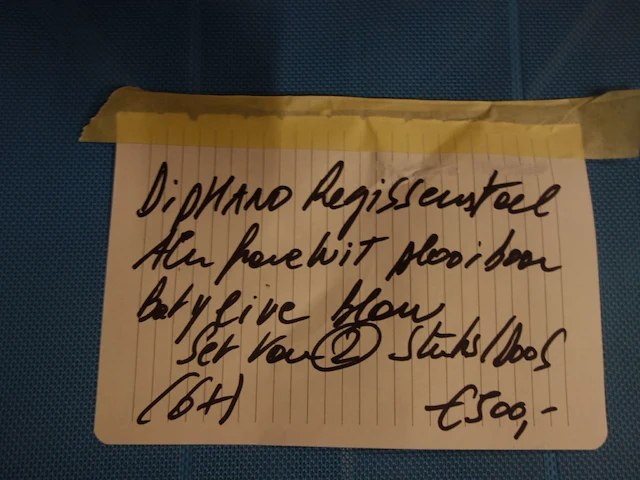 DipHANO Regisseurstoel
Alu frame wit plooibaar
Batyline blauw
Set van 2 stuks/doos
(6+)
€500,-